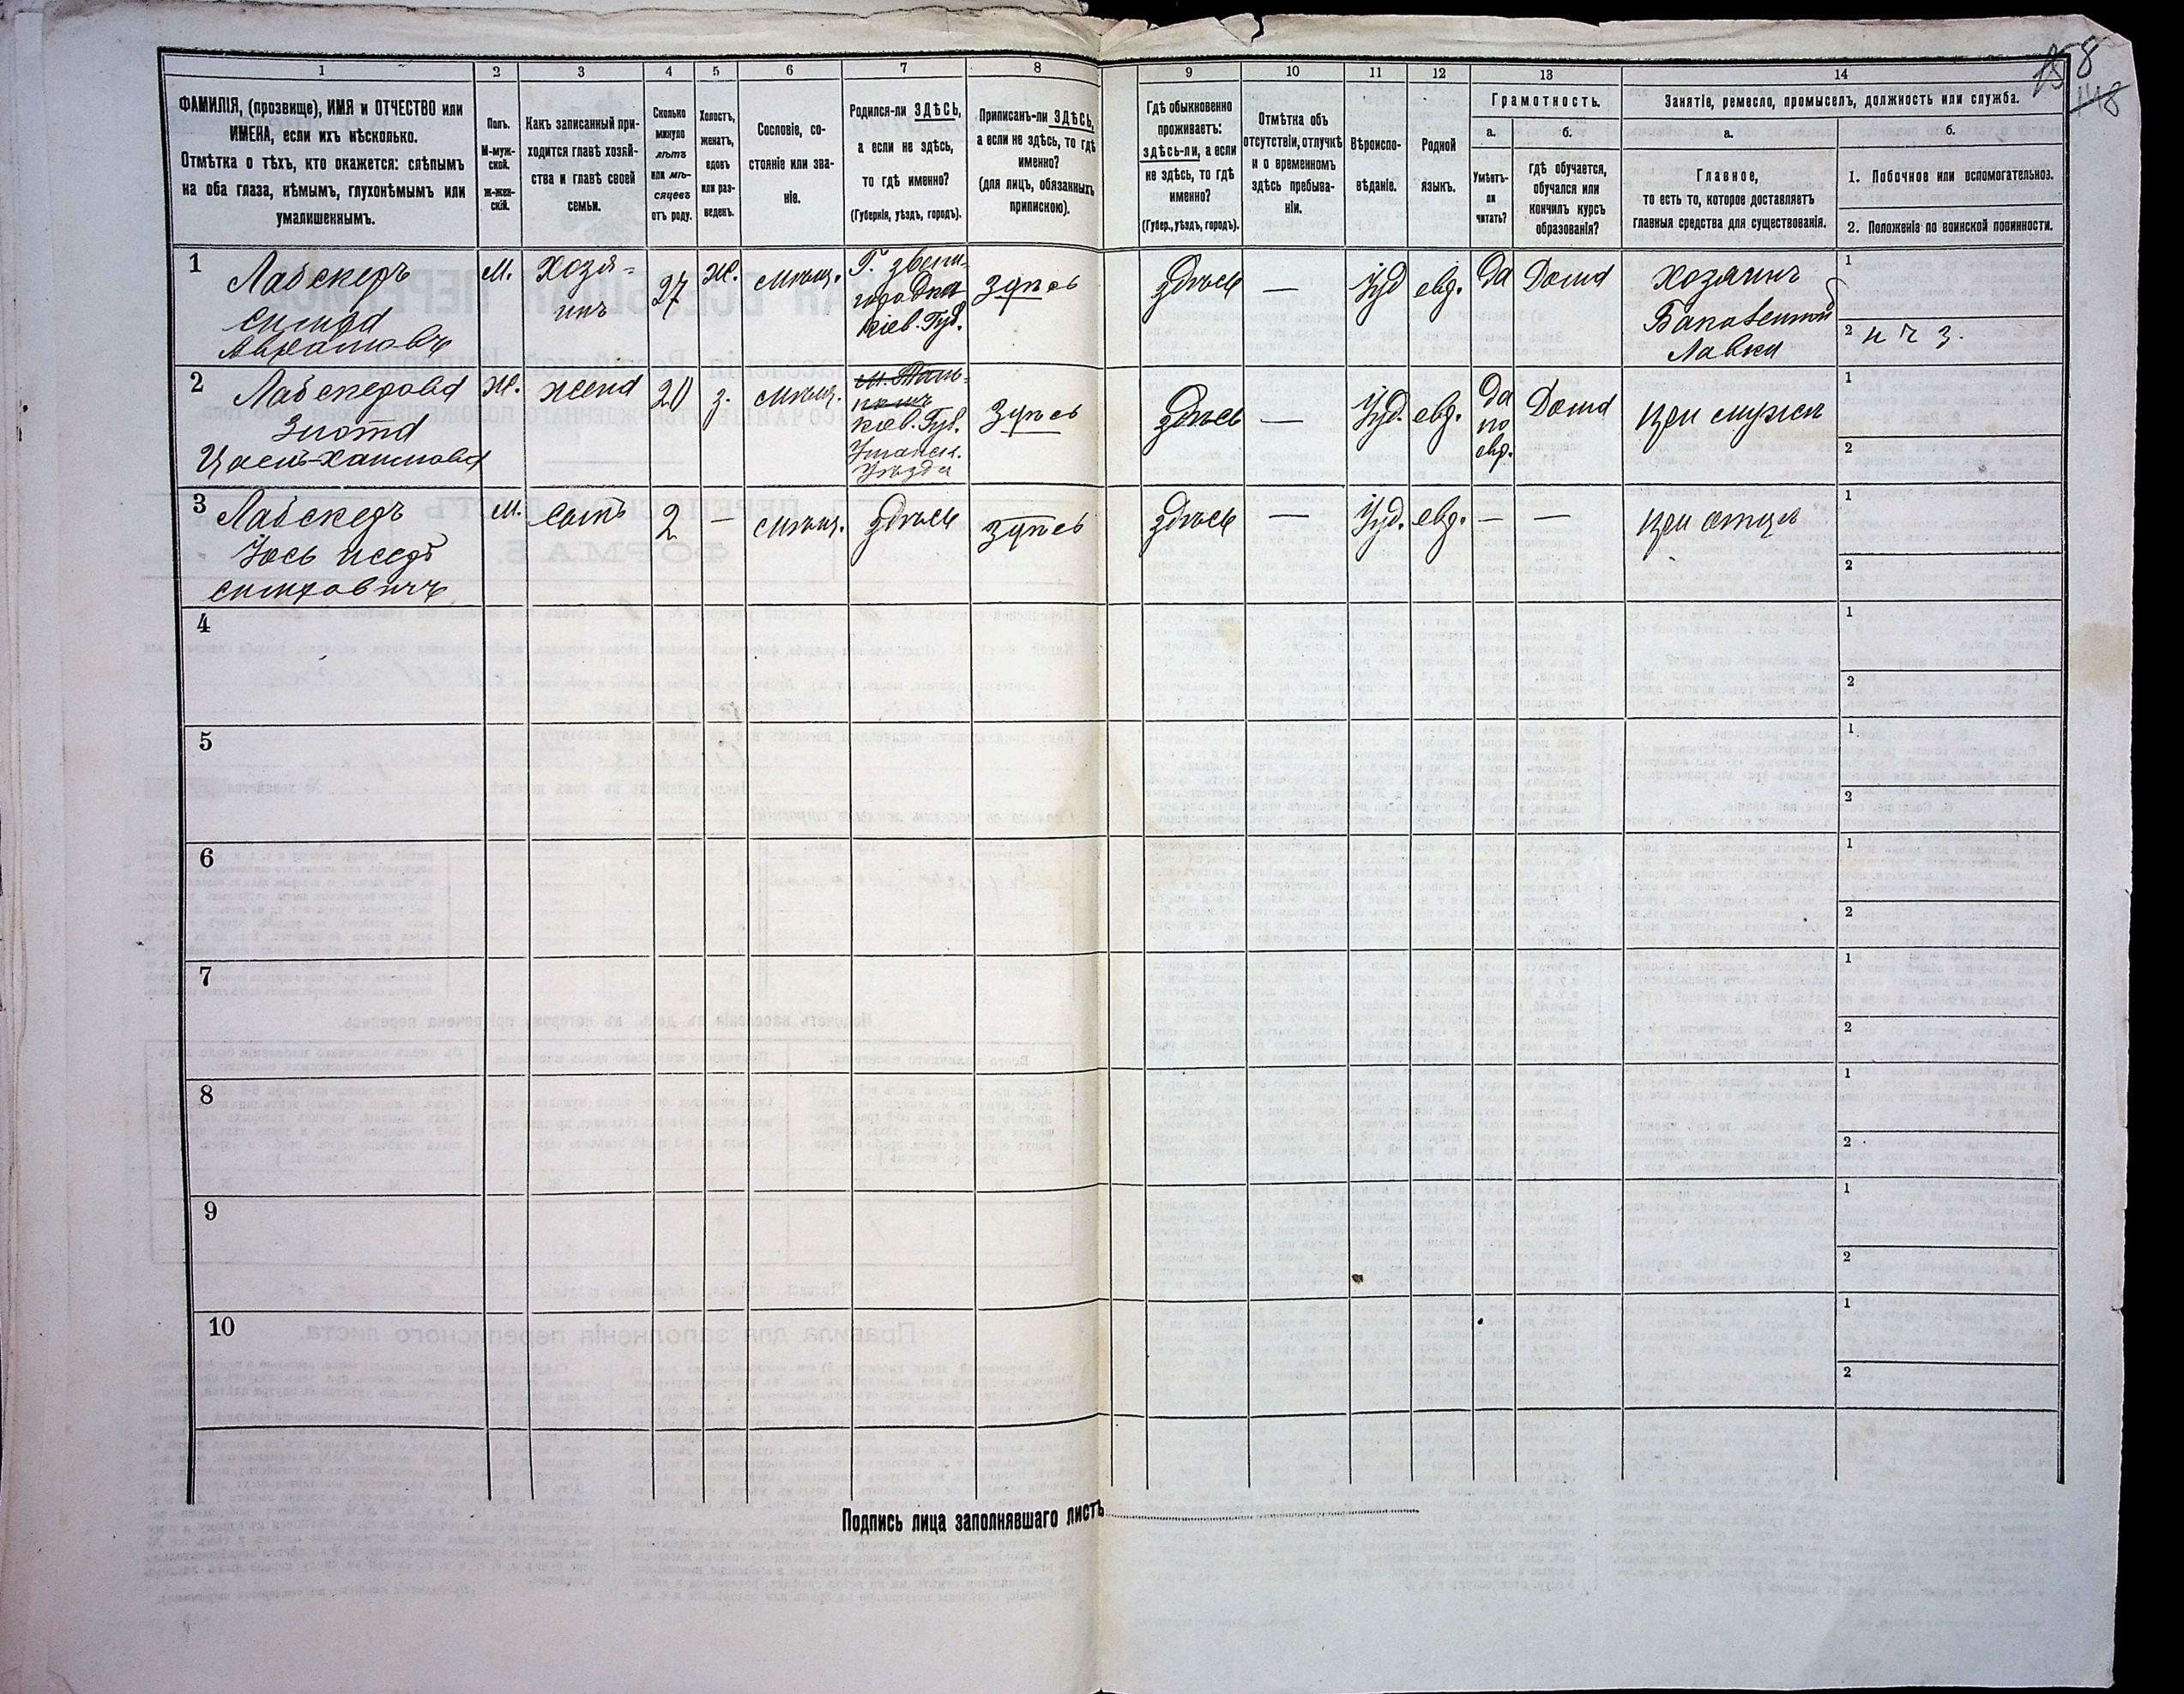 158
148
1 2 3 4 5 6 7 8 9 10 11 12 13 14
ФАМИЛІЯ, (прозвище), ИМЯ и ОТЧЕСТВО или
ИМЕНА, если ихъ нѣсколько.
Отмѣтка о тѣхъ, кто окажется: слѣпымъ
на оба глаза, нѣмымъ, глухонѣмымъ или
умалишеннымъ.
Полъ.
М-муж-
ской.
Ж-жен-
скій.
Какъ записанный при-
ходится главѣ хозяй-
ства и главѣ своей
семьи.
Сколько
минуло
лѣтъ
или мѣ-
сяцевъ
отъ роду.
Холостъ,
женатъ,
вдовъ
или раз-
веденъ.
Сословіе, со-
стояніе или зва-
ніе.
Родился-ли ЗДѢСЬ,
а если не здѣсь,
то гдѣ именно?
(Губернія, уѣздъ, городъ).
Приписанъ-ли ЗДѢСЬ,
а если не здѣсь, то гдѣ
именно?
(для лицъ, обязанныхъ
припискою).
Гдѣ обыкновенно
проживаетъ:
здѣсь-ли, а если
не здѣсь, то гдѣ
именно?
(Губер., уѣздъ, городъ).
Отмѣтка объ
отсутствіи, отлучкѣ
и о временномъ
здѣсь пребыва-
ніи.
Вѣроиспо-
вѣданіе.
Родной
языкъ.
Грамотность.
а.
Умѣетъ-
ли
читать?
б.
гдѣ обучается,
обучался или
кончилъ курсъ
образованія?
Занятіе, ремесло, промыселъ, должность или служба.
а.
Главное,
то есть то, которое доставляетъ
главныя средства для существованія.
б.
1. Побочное или вспомогательное.
2. Положеніе по воинской повинности.
1
Лайскеръ
Симха
Авраамовъ
М.
Хозя-
инъ
27
Ж.
мѣщ.
Г. Звени-
городка
Кіев. Губ.
Здѣсь
здѣсь
—
Іуд
евр.
да
Дома
Хозяинъ
Бакалейной
Лавки
1
2 и ч з.
2
Лайскерова
Злота
Ж.
жена
20
з.
мѣщ.
Кіев. Губ.
Уманск.
Уѣзда
Здѣсь
здѣсь
—
Іуд.
евр.
да
по
евр.
Дома
при мужѣ
1
2
3
Лайскеръ
Симховичъ
М.
сынъ
2
—
мѣщ.
здѣсь
Здѣсь
здѣсь
—
Іуд.
евр.
—
—
при отцѣ
1
2
4
1
2
5
1
2
6
1
2
7
1
2
8
1
2
9
1
2
10
1
2
Подпись лица заполнявшаго листъ